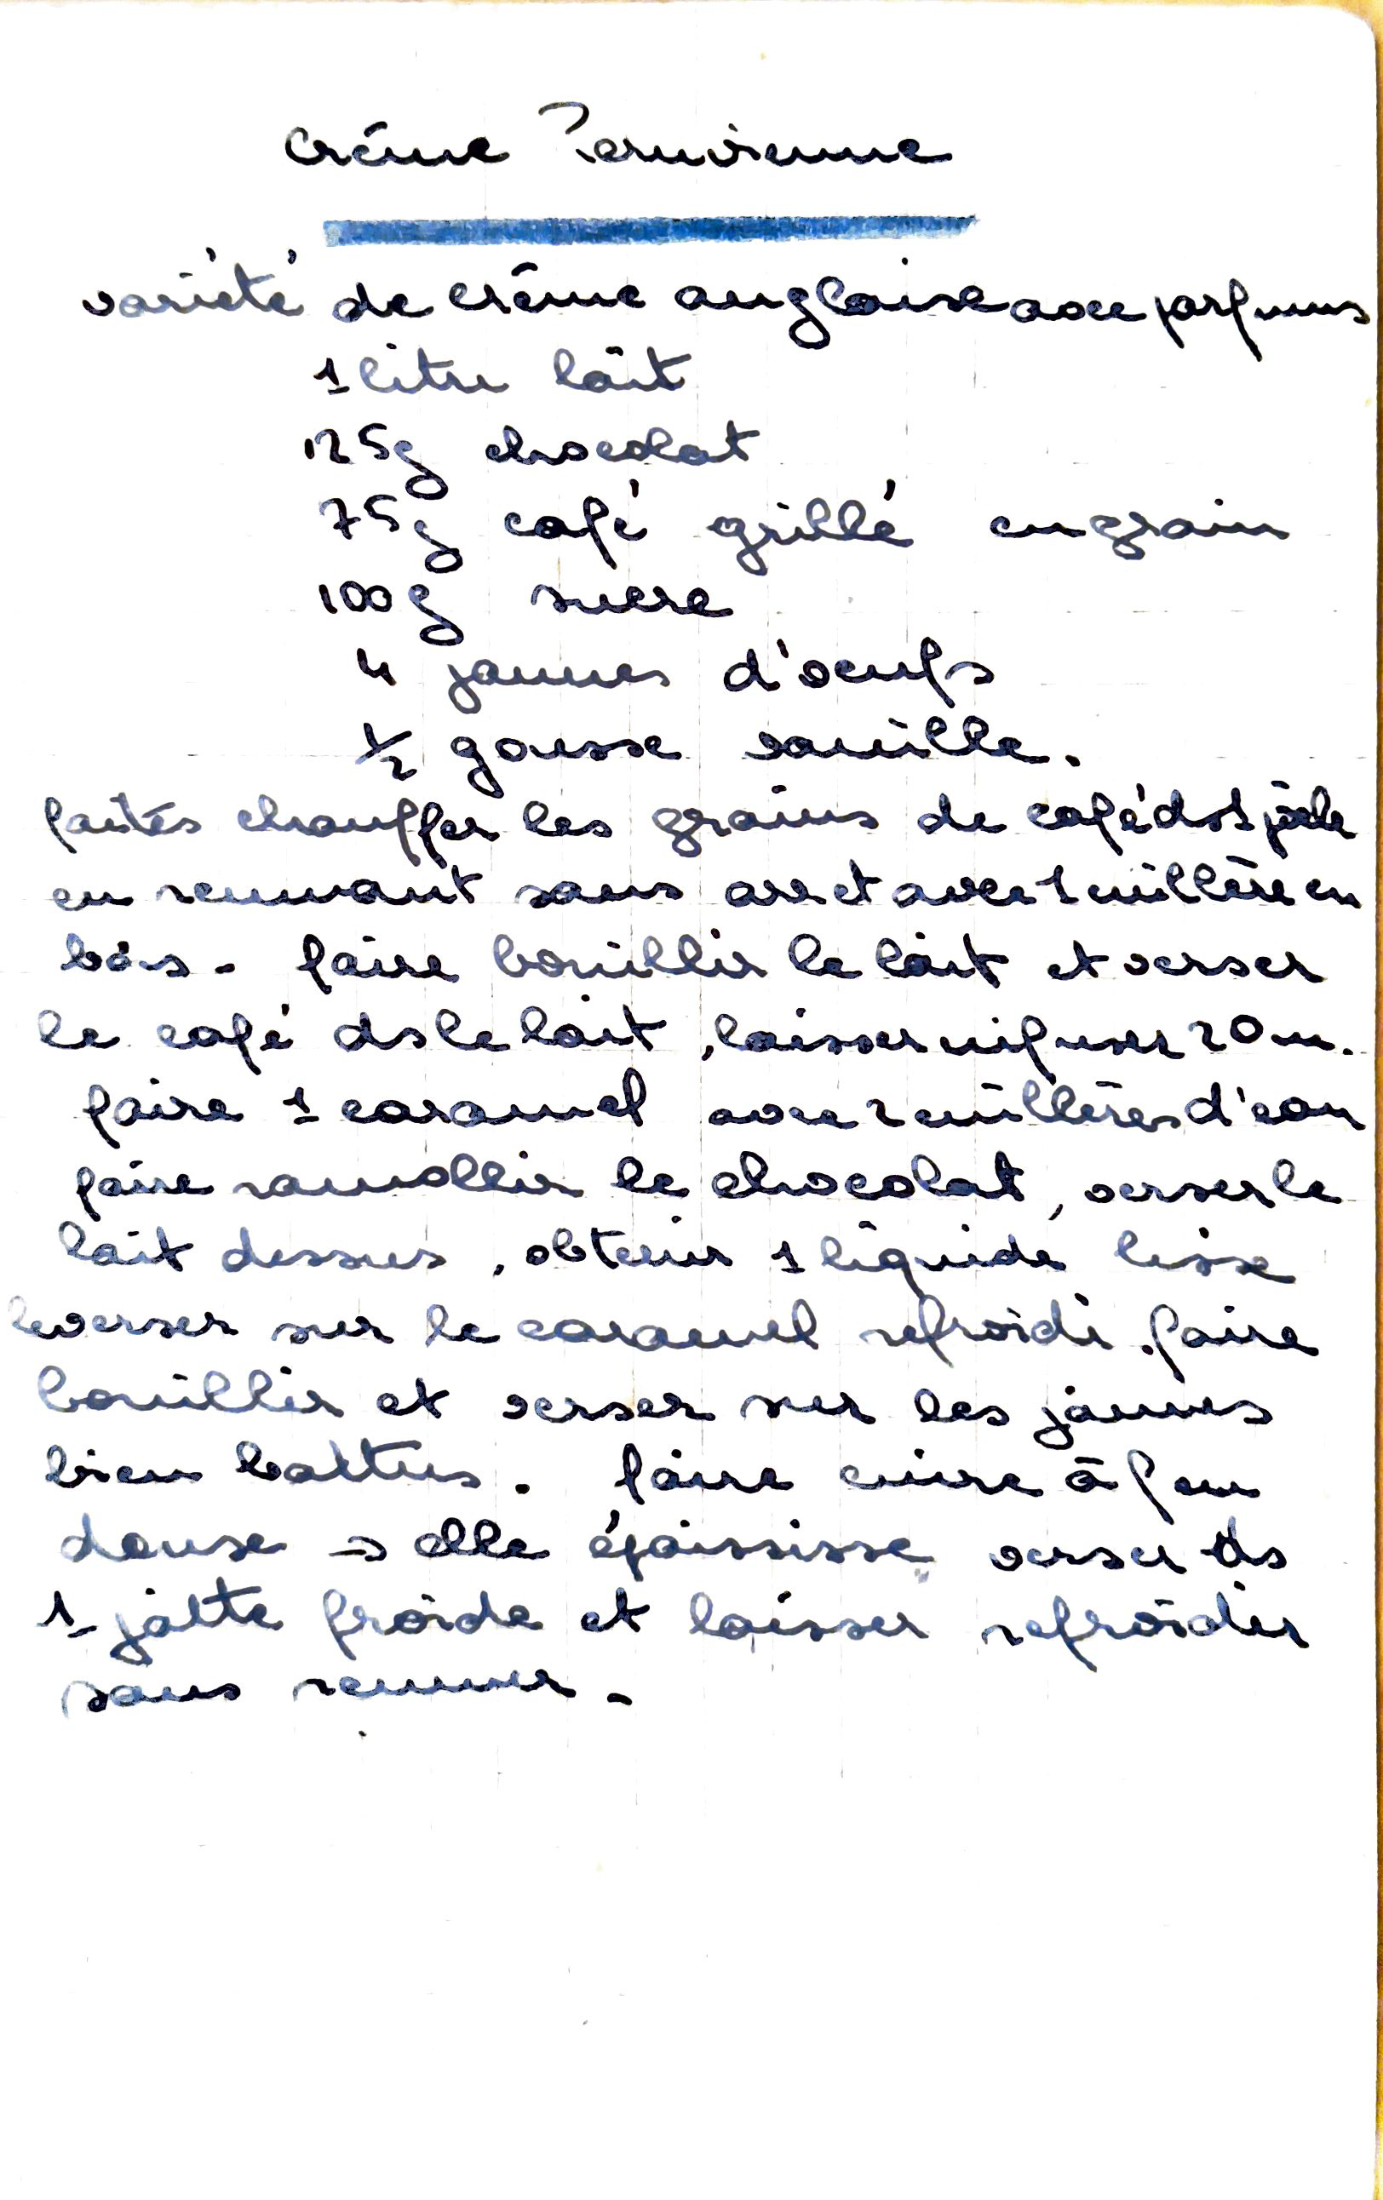 Crème Peruvienne
variété de crème anglaise avec parfums
1 litre lait
125g chocolat
75g café grillé en grain
100g sucre
4 jaunes d'oeufs
1/2 gousse vanille.
faites chauffer les grains de café ds 1 poêle
en remuant sans arret avec 1 cuillère en
bois - faire bouillir le lait et verser
le café ds le lait, laisser infuser 20 m.
faire 1 caramel avec 2 cuillères d'eau
faire ramollir le chocolat, verser le
lait dessus, obtenir 1 liquide lisse
le verser sur le caramel refroidi. faire
bouillir et verser sur les jaunes
bien battus. faire cuire à feu
doux → elle épaississe verser ds
1 jatte froide et laisser refroidir
sans remuer -